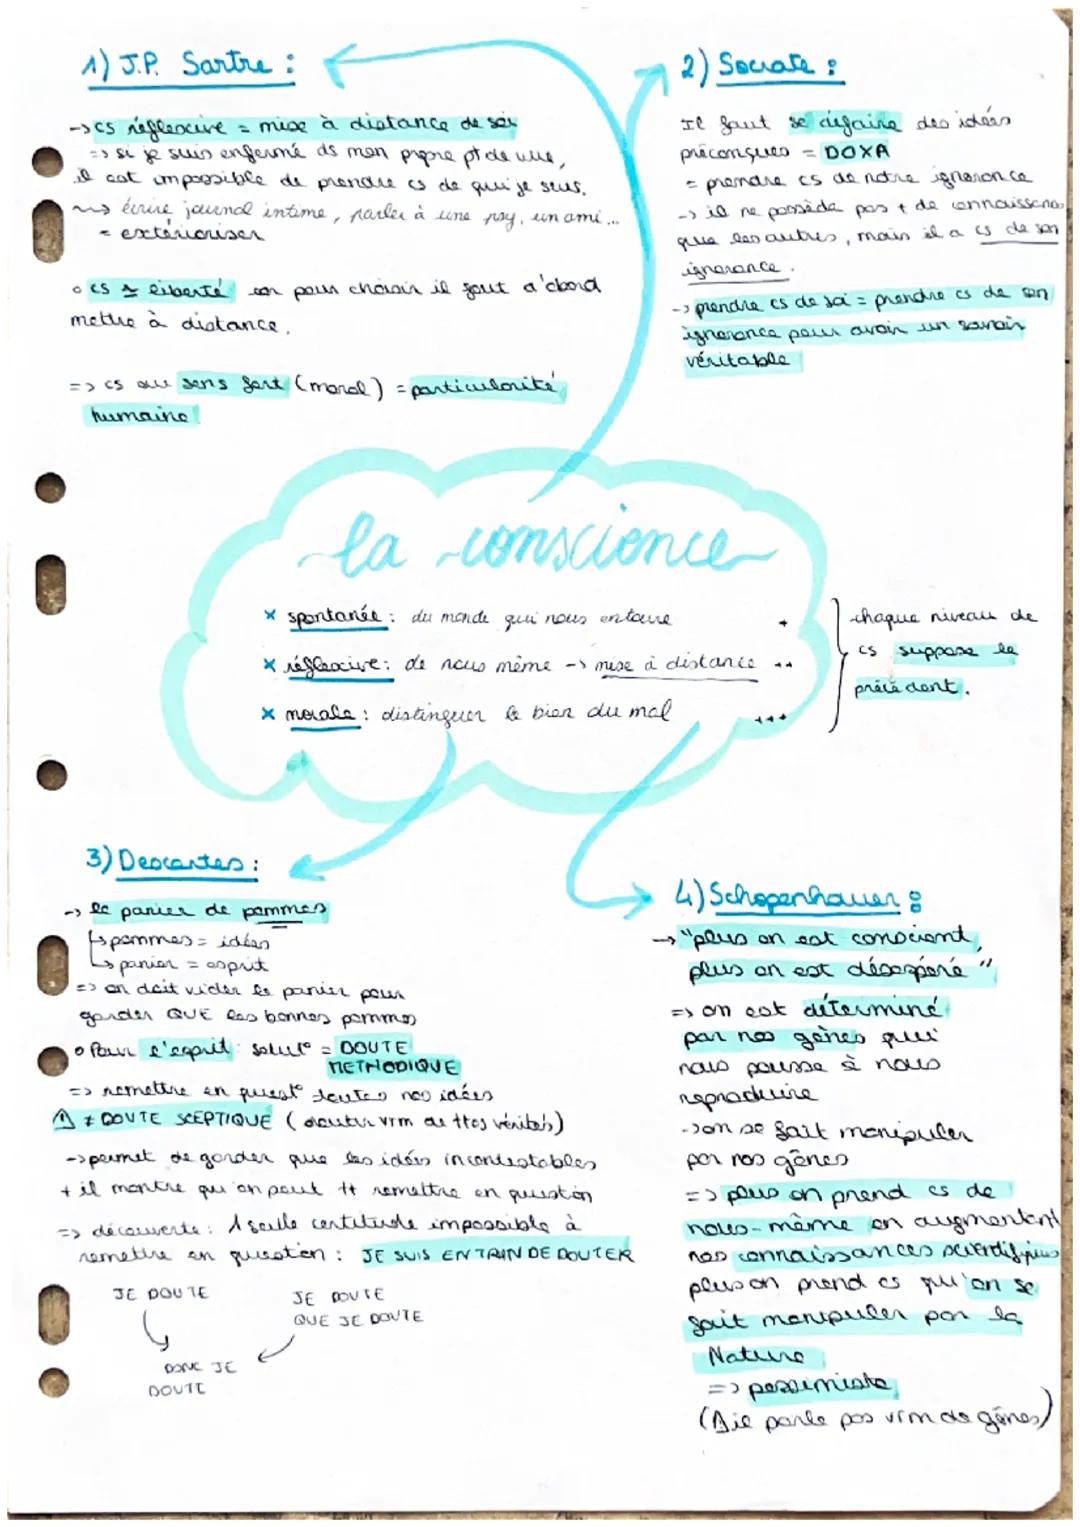 1) J.P. Sartre :
-> cs réflexive = mise à distance de soi
=> si je suis enfermé ds mon propre pt de vue,
il est impossible de prendre cs de qui je suis.
~> écrire journal intime, parler à une psy, un ami...
= extérioriser
o cs ≃ liberté car pour choisir il faut d'abord
mettre à distance.
=> cs au sens fort (moral) = particularité
humaine
2) Socrate :
Il faut se défaire des idées
préconçues = DOXA
= prendre cs de notre ignorance
-> il ne possède pas + de connaissances
que les autres, mais il a cs de son
ignorance.
-> prendre cs de soi = prendre cs de son
ignorance pour avoir un savoir
véritable
la conscience
x spontanée : du monde qui nous entoure +
x réflexive : de nous même -> mise à distance ++
x morale : distinguer le bien du mal +++
chaque niveau de
cs suppose le
précédent.
3) Descartes :
-> le panier de pommes
↳ pommes = idées
↳ panier = esprit
=> on doit vider le panier pour
garder QUE les bonnes pommes
o Pour l'esprit : solut° = DOUTE
METHODIQUE
=> remettre en quest° toutes nos idées
⚠ ≠ DOUTE SCEPTIQUE (douter vrm de ttes vérités)
-> permet de garder que les idées incontestables
+ il montre qu'on peut tt remettre en question
=> découverte : 1 seule certitude impossible à
remettre en question : JE SUIS EN TRAIN DE DOUTER
JE DOUTE
JE DOUTE
QUE JE DOUTE
DONC JE
DOUTE
4) Schopenhauer :
-> "plus on est conscient,
plus on est désespéré"
=> on est déterminé
par nos gènes qui
nous pousse à nous
reproduire
-> on se fait manipuler
par nos gènes
=> plus on prend cs de
nous-même en augmentant
nos connaissances scientifiques
plus on prend cs qu'on se
fait manipuler par la
Nature
=> pessimiste
(⚠ il parle pas vrm de gènes)